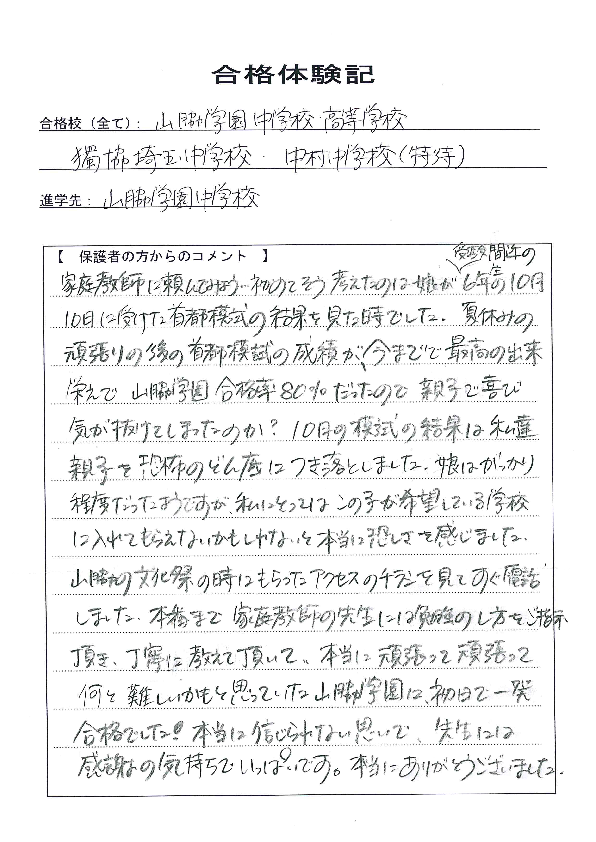 合格体験記
合格校（全て）： 山脇学園中学校・高等学校
獨協埼玉中学校・中村中学校（特待）
進学先： 山脇学園中学校
【 保護者の方からのコメント 】
受験間近の
家庭教師に頼んでみよう…初めてそう考えたのは娘が6年生の10月
10日に受けた首都模試の結果を見た時でした。夏休みの
頑張りの後の首都模試の成績が、今までで最高の出来
栄えで 山脇学園 合格率80%だったので 親子で喜び
気が抜けてしまったのか？ 10月の模試の結果は私達
親子を恐怖のどん底につき落としました。娘はがっかり
程度だったようですが、私にとってはこの子が希望している学校
に入れてもらえないかもしれないと本当に恐しさを感じました。
山脇の文化祭の時にもらったアクセスのチラシを見てすぐ電話
しました。本番まで 家庭教師の先生には勉強のし方をご指示
頂き、丁寧に教えて頂いて、本当に頑張って頑張って
何と難しいかもと思っていた山脇学園に、初日で一発
合格でした!! 本当に信じられない思いで、先生には
感謝の気持ちでいっぱいです。本当にありがとうございました。